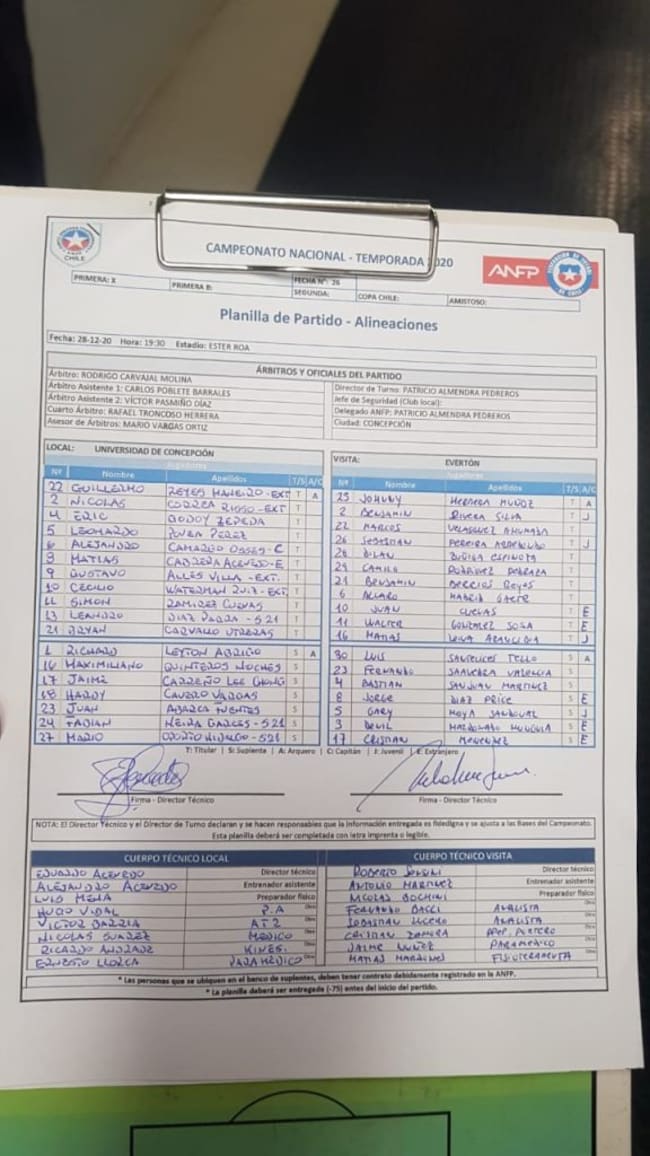 CHILE
CAMPEONATO NACIONAL - TEMPORADA 2020
ANFP
PRIMERA: X PRIMERA B: FECHA N°: 26 SEGUNDA: COPA CHILE: AMISTOSO:
Planilla de Partido - Alineaciones
Fecha: 28-12-20 Hora: 19:30 Estadio: ESTER ROA
ÁRBITROS Y OFICIALES DEL PARTIDO
Árbitro: RODRIGO CARVAJAL MOLINA
Árbitro Asistente 1: CARLOS POBLETE BARRALES
Árbitro Asistente 2: VÍCTOR PASMIÑO DÍAZ
Cuarto Árbitro: RAFAEL TRONCOSO HERRERA
Asesor de Árbitros: MARIO VARGAS ORTIZ
Director de Turno: PATRICIO ALMENDRA PEDREROS
Jefe de Seguridad (Club local):
Delegado ANFP: PATRICIO ALMENDRA PEDREROS
Ciudad: CONCEPCIÓN
LOCAL: UNIVERSIDAD DE CONCEPCIÓN
Jugadores
Nº Nombre Apellidos T/S A/C
22 GUILLERMO REYES MANEIRO-EXT T A
2 NICOLAS CORREA RISSO-EXT T
4 ERIC GODOY ZEPEDA T
5 LEONARDO POVEA PEREZ T
6 ALEJANDRO CAMARGO OSSES-C T
MATIAS CABRERA ACEVEDO-E T
9 GUSTAVO ALLES VILLA-EXT. T
10 CECILIO WATERMAN RUIZ-EXT. T
11 SIMON RAMIREZ CUEVAS T
13 LEANDRO DIAZ PARRA-S21 T
21 BRYAN CARVALLO UTRERAS T
1 RICHARD LEYTON ABRIGO S A
16 MAXIMILIANO QUINTEROS S
17 JAIME CARREÑO LEE CHONG S
18 HARDY CAVERO VARGAS S
23 JUAN ABARCA FUENTES S
24 FABIAN NEIRA GARCES-S21 S
27 MARIO OSORIO HIDALGO-S21 S
VISITA: EVERTÓN
Jugadores
Nº Nombre Apellidos T/S A/C
25 JOHNNY HERRERA MUÑOZ T A
2 BENJAMIN RIVERA SILVA T J
22 MARCOS VELASQUEZ AHUMADA T
26 SEBASTIAN PEREIRA ARREDONDO T J
DILAN ZUÑIGA ESPINOZA T
CAMILO RODRIGUEZ PEDRAZA T
21 BENJAMIN BERRIOS REYES T
6 ALVARO MADRID GAETE T
10 JUAN CUEVAS T E
11 WALTER GONZALEZ SOSA T E
16 MATIAS LEIVA ARANCIBIA T J
30 LUIS SANTELICES TELLO S A
23 FERNANDO SAAVEDRA VALENCIA S
4 BASTIAN SAN JUAN MARTINEZ S
8 JORGE DIAZ PRICE S E
5 GARY MOYA SANDOVAL S J
3 MALDONADO MUNGUIA S E
17 CRISTIAN MENENDEZ S E
T: Titular | S: Suplente | A: Arquero | C: Capitán | J: Juvenil | E: Extranjero
Firma - Director Técnico
Firma - Director Técnico
NOTA: El Director Técnico y el Director de Turno declaran y se hacen responsables que la información entregada es fidedigna y se ajusta a las Bases del Campeonato.
Esta planilla deberá ser completada con letra imprenta o legible.
CUERPO TÉCNICO LOCAL
EDUARDO ACEVEDO Director técnico
ALEJANDRO ACEVEDO Entrenador asistente
LUIS MENA Preparador físico
HUGO VIDAL P.A Otro
VICTOR BARRIA AT2 Otro
NICOLAS SUAREZ MEDICO Otro
RICARDO ANDRADE KINES. Otro
ERNESTO LLORCA PARAMEDICO Otro
CUERPO TÉCNICO VISITA
ROBERTO SENSINI Director técnico
ANTONIO MARTINEZ Entrenador asistente
NICOLAS BOCHINI Preparador físico
FERNANDO BACCI ANALISTA Otro
SEBASTIAN LUCERO ANALISTA Otro
CRISTIAN ZAMORA PREP. PORTERO Otro
JAIME MUÑOZ PARAMEDICO Otro
MATIAS MARDONES FISIOTERAPEUTA Otro
* Las personas que se ubiquen en el banco de suplentes, deben tener contrato debidamente registrado en la ANFP.
* La planilla deberá ser entregada (-75) antes del inicio del partido.